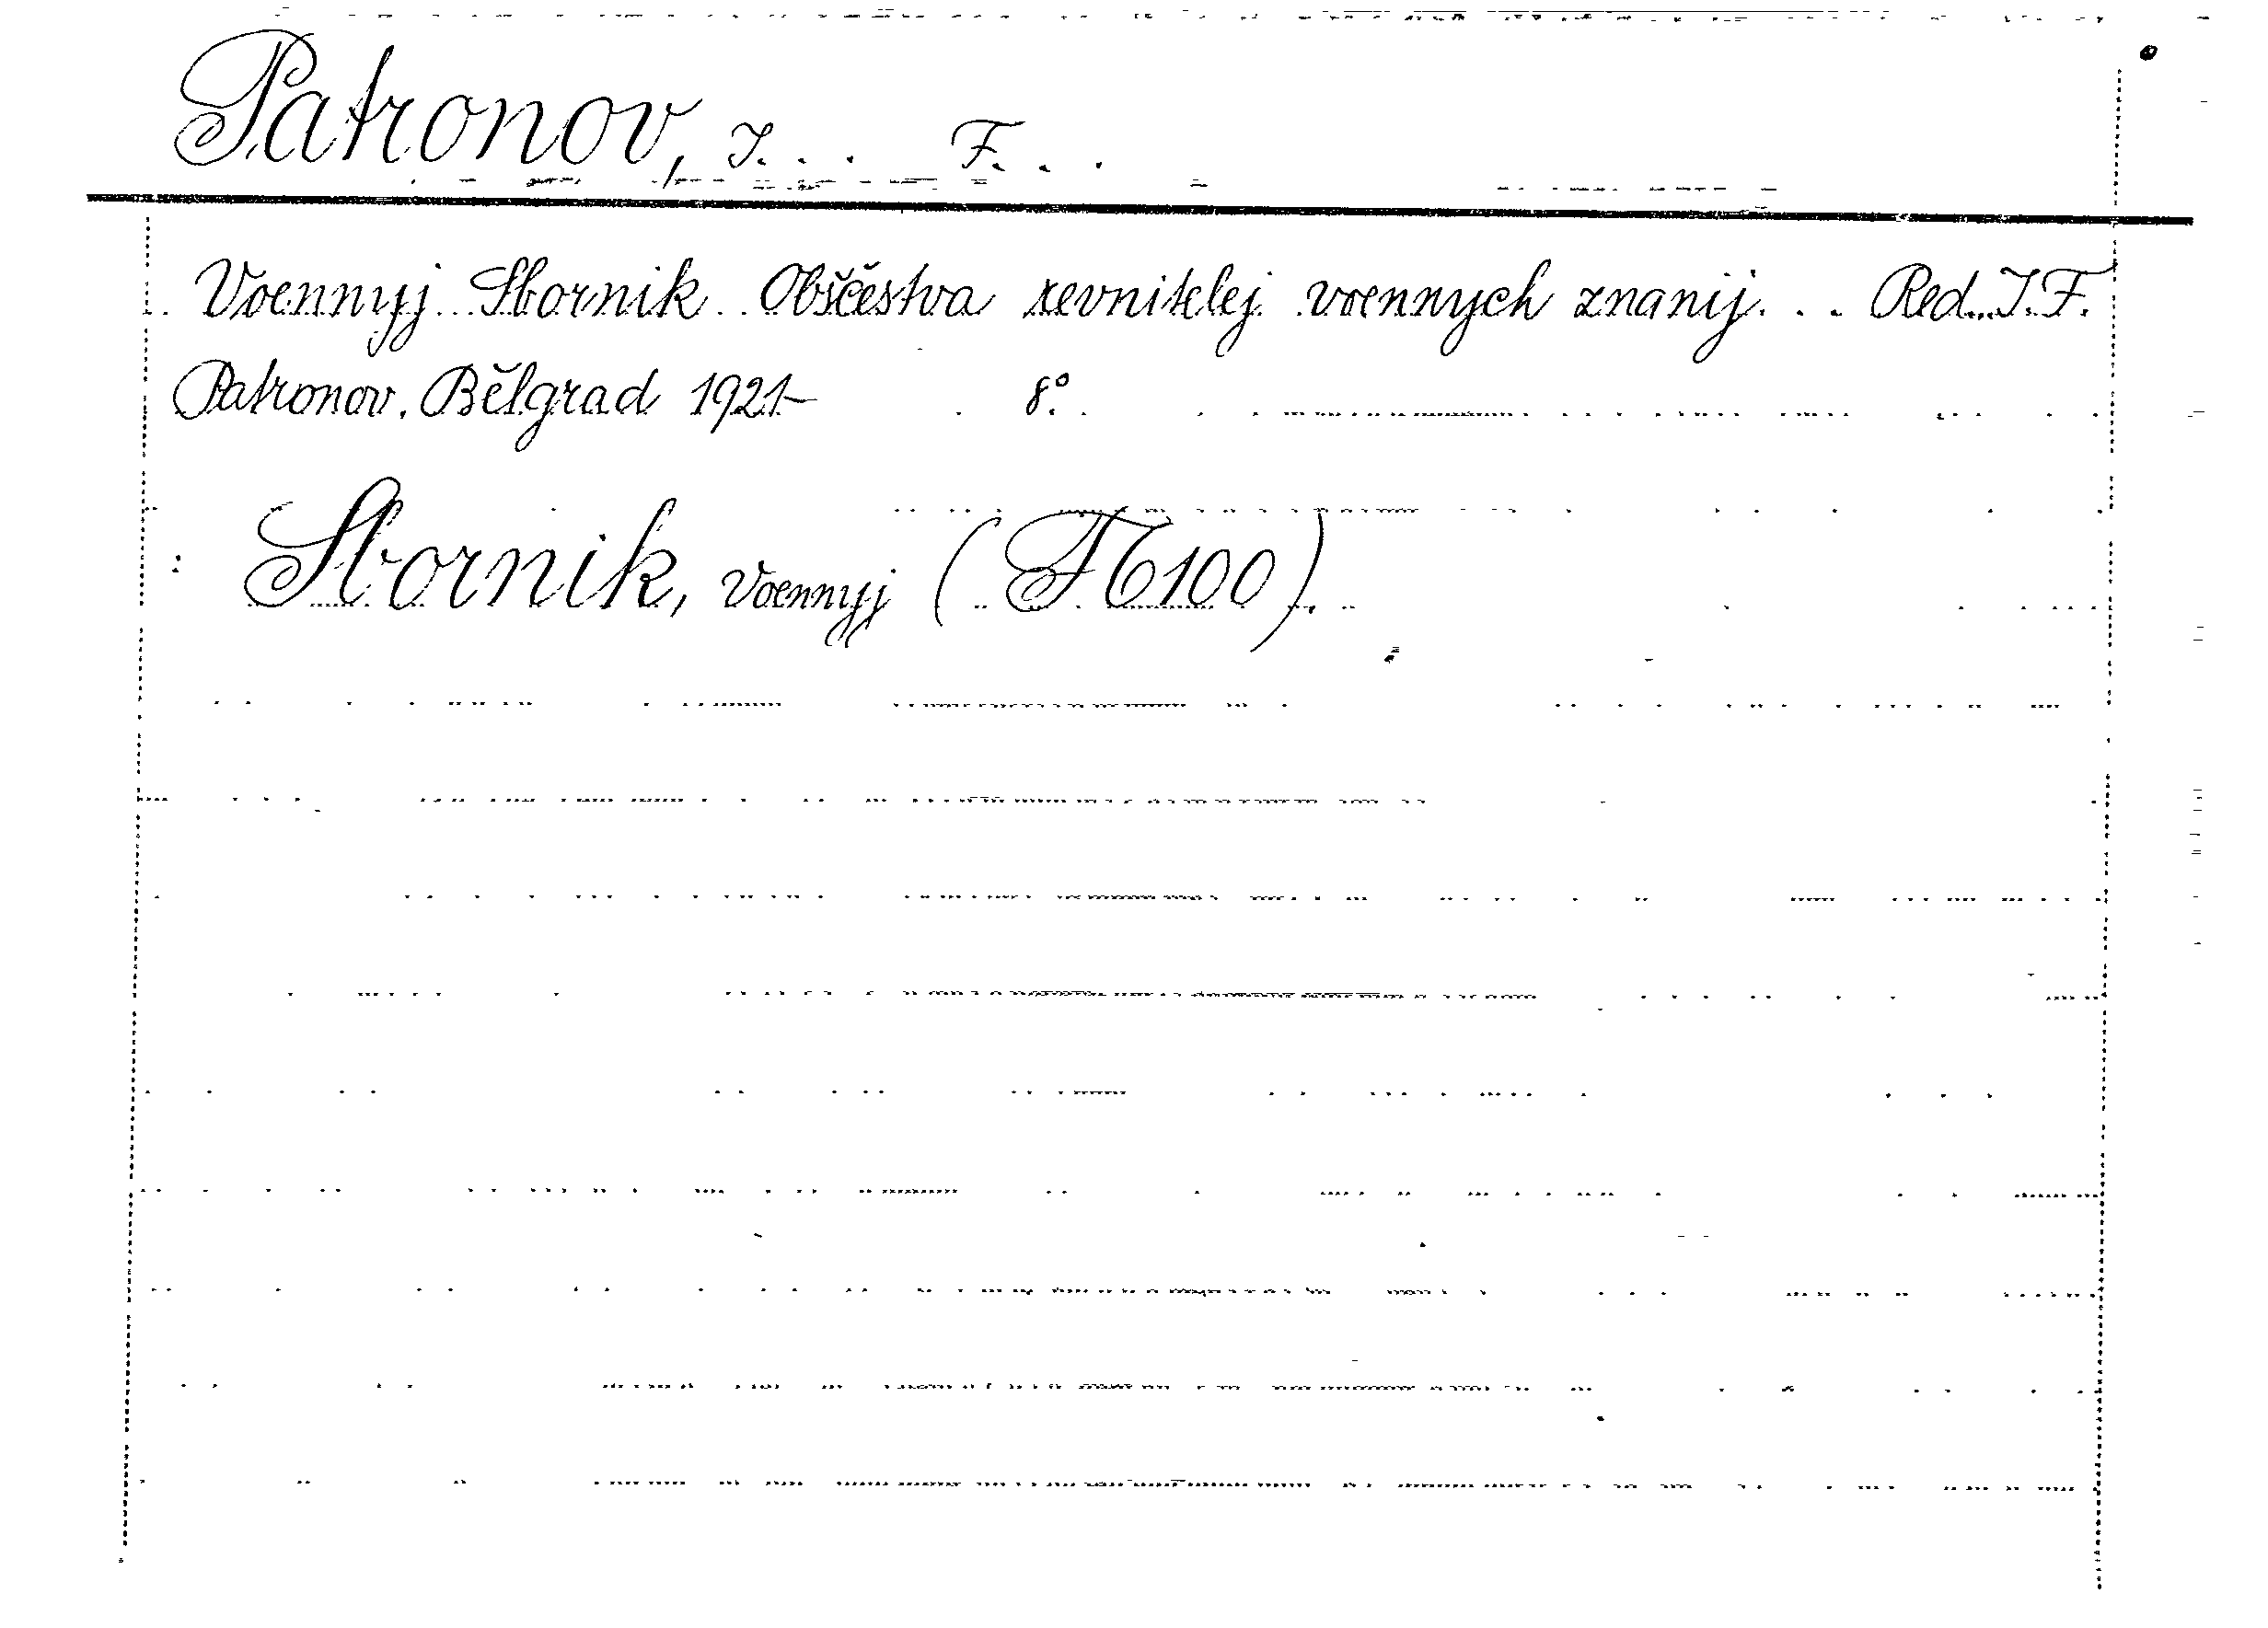 Patronov, I... F...
Voennyj Sbornik Obščestva revnitelej voennych znanij... Red. I. F.
Patronov. Bělgrad 1921– 8°.
: Sbornik, Voennyj (F 6100).